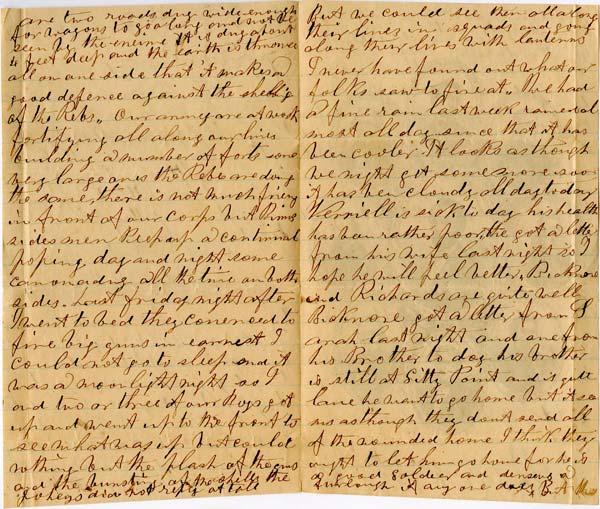 are two roads dug wide enough
for wagons to go along and not be
seen by the enemy. It is dug about
4 feet deep and the earth is thrown
all on one side that it makes a
good defence against the shells
of the Rebs,, Our army are at work
fortifying all along our lines
building a number of forts some
very large ones the Rebs are doing
the same, there is not much fireing
in front of our Corps but
sides men keep up a continual
poping day and night some
canonading all the time on both
sides. Last friday night after
I went to bed they comenced to
fire big guns in earnest I
could not go to sleep and it
was a moonlight night so I
and two or three of our Boys got
up and went up to the front to
see what was up but could
nothing but the flash of the guns
and the bursting of the shells the
did not reply at all
But we could see them all along
their lines in squads and going
along their lines with lanterns
I never have found out what our
folks saw to fire at,, We had
a fine rain last week rained al
most all day since that it has
been cooler. It looks as though
we might get some more soon
it has been cloudy all day to day
Verriell is sick to day his health
has been rather poor, he got a letter
from his wife last night so I
hope he will feel better, Bicknore
and Richards are quite well
Bicknore got a letter from S
arah last night and one from
his Brother to day his brother
is still at Citty Point and is quite
lame he want to go home but it see
ms as though they dont send all
of the wounded home I think they
ought to let him go home for he is
a good Soldier and deserves a
furlough if any one does B. A.